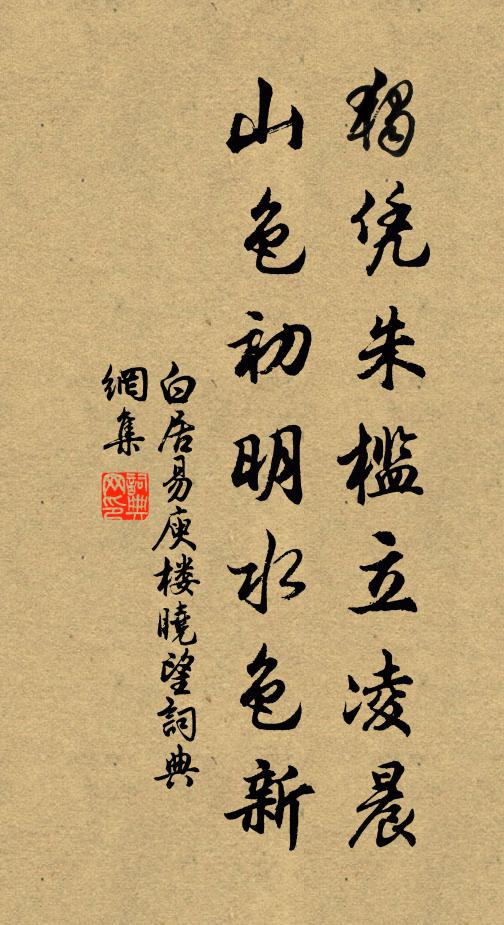 獨凭朱檻立凌晨
山色初明水色新
白居易庾楼曉望詞典
網集
詞典
网印